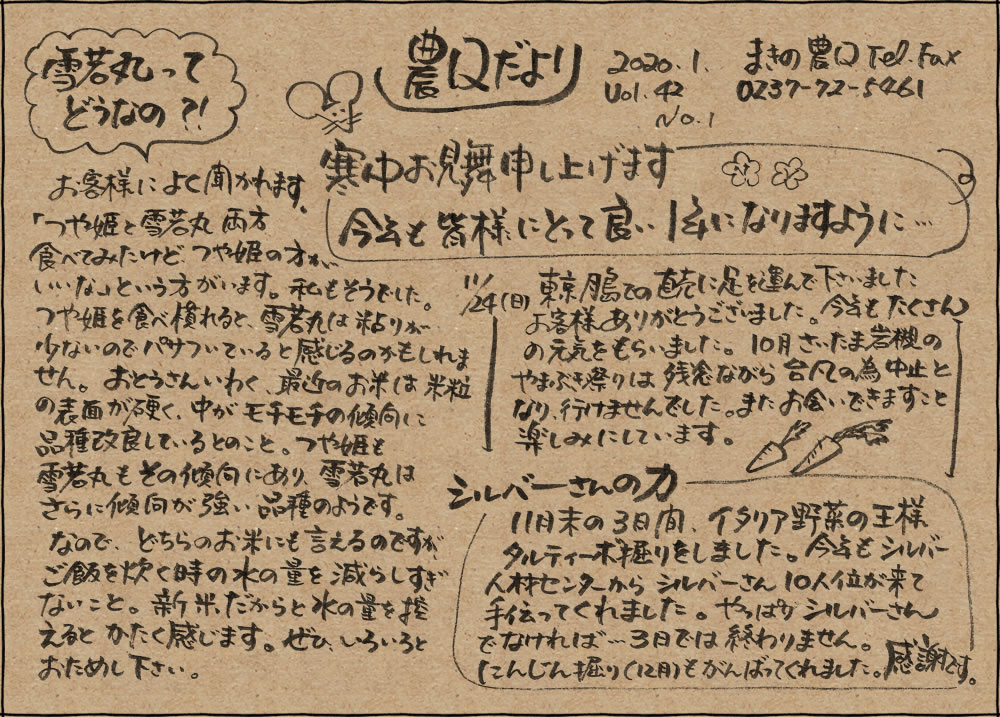 農Qだより
2020.1.
Vol.42
No.1
まきの農Q Tel.Fax
0237-72-5461
雪若丸って
どうなの?!
お客様によく聞かれます。
「つや姫と雪若丸 両方
食べてみたけど つや姫の方が
いいな」という方がいます。私もそうでした。
つや姫を食べ慣れると、雪若丸は粘りが
少ないのでパサついていると感じるのかもしれま
せん。おとうさんいわく、最近のお米は米粒
の表面が硬く、中がモチモチの傾向に
品種改良しているとのこと。つや姫も
雪若丸もその傾向にあり、雪若丸は
さらに傾向が強い品種のようです。
なので、どちらのお米にも言えるのですが、
ご飯を炊く時の水の量を減らしすぎ
ないこと。新米だからと水の量を控
えるとかたく感じます。ぜひ、いろいろと
おためし下さい。
寒中お見舞申し上げます
今年も皆様にとって良い1年になりますように…
11/24(日)
東京 月島での直売に足を運んで下さいました
お客様ありがとうございました。今年もたくさん
の元気をもらいました。10月さいたま岩槻の
やまぶき祭りは残念ながら台風の為中止と
なり、行けませんでした。またお会いできますこと
楽しみにしています。
シルバーさんの力
11月末の3日間、イタリア野菜の王様
タルティーボ掘りをしました。今年もシルバー
人材センターからシルバーさん10人位が来て
手伝ってくれました。やっぱりシルバーさん
でなければ…3日では終わりません。
にんじん掘り(12月)もがんばってくれました。感謝です。